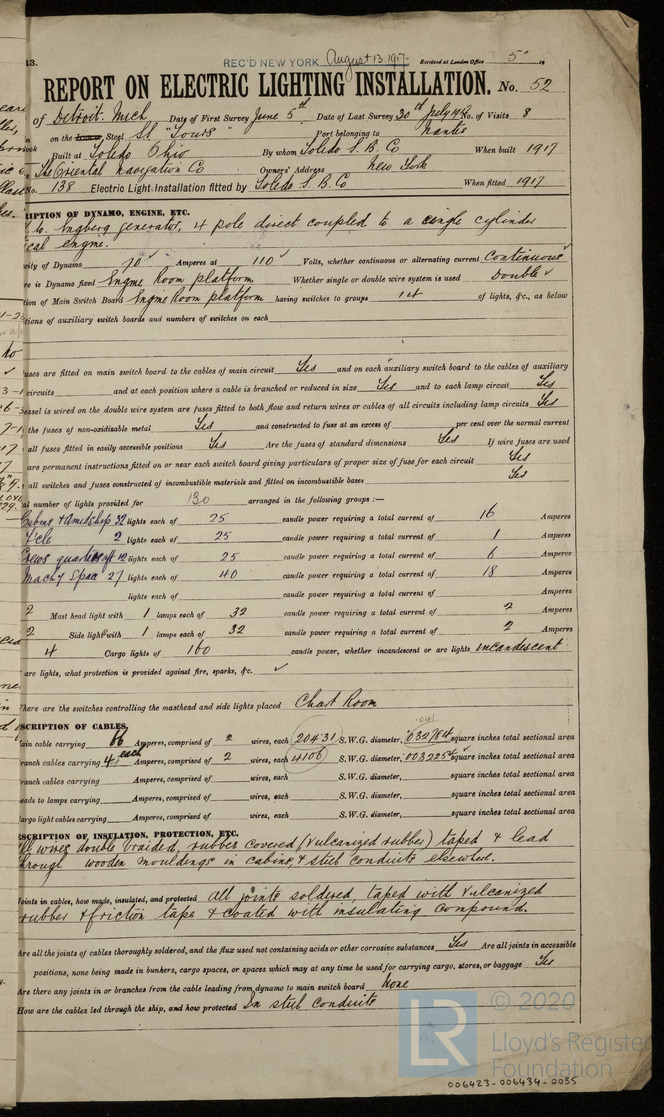 13.
REC'D NEW YORK August 13 1917. Received at London Office 5 19
REPORT ON ELECTRIC LIGHTING INSTALLATION. No. 52
of Detroit. Mich Date of First Survey June 5th Date of Last Survey 30th July No. of Visits 8
on the Steel SS "Tours" Port belonging to Nantes
Built at Toledo Ohio By whom Toledo S. B. Co When built 1917
The Oriental Navigation Co Owners' Address New York
No. 138 Electric Light Installation fitted by Toledo S. B. Co When fitted 1917
RIPTION OF DYNAMO, ENGINE, ETC.
Engberg generator, 4 pole direct coupled to a single cylinder
ical engine.
city of Dynamo 70 Amperes at 110 Volts, whether continuous or alternating current Continuous
re is Dynamo fixed Engine Room platform Whether single or double wire system is used Double
tion of Main Switch Board Engine Room platform having switches to groups 14 of lights, &c., as below
tions of auxiliary switch boards and numbers of switches on each
uses are fitted on main switch board to the cables of main circuit Yes and on each auxiliary switch board to the cables of auxiliary
circuits and at each position where a cable is branched or reduced in size Yes and to each lamp circuit Yes
essel is wired on the double wire system are fuses fitted to both flow and return wires or cables of all circuits including lamp circuits Yes
the fuses of non-oxidisable metal Yes and constructed to fuse at an excess of per cent over the normal current
all fuses fitted in easily accessible positions Yes Are the fuses of standard dimensions Yes If wire fuses are used
are permanent instructions fitted on or near each switch board giving particulars of proper size of fuse for each circuit Yes
all switches and fuses constructed of incombustible materials and fitted on incombustible bases Yes
al number of lights provided for 130 arranged in the following groups :—
Cabins & Amidship 32 lights each of 25 candle power requiring a total current of 16 Amperes
F'cle 2 lights each of 25 candle power requiring a total current of 1 Amperes
Crews quarters aft 12 lights each of 25 candle power requiring a total current of 6 Amperes
Mach'y Spac 27 lights each of 40 candle power requiring a total current of 18 Amperes
lights each of candle power requiring a total current of Amperes
2 Mast head light with 1 lamps each of 32 candle power requiring a total current of 2 Amperes
2 Side light with 1 lamps each of 32 candle power requiring a total current of 2 Amperes
4 Cargo lights of 160 candle power, whether incandescent or arc lights incandescent
arc lights, what protection is provided against fire, sparks, &c.
here are the switches controlling the masthead and side lights placed Chart Room
SCRIPTION OF CABLES.
ain cable carrying 66 Amperes, comprised of 2 wires, each 20431 S.W.G. diameter, .032784 square inches total sectional area
ranch cables carrying 4 each Amperes, comprised of 2 wires, each 4106 S.W.G. diameter, .0032254 square inches total sectional area
ranch cables carrying Amperes, comprised of wires, each S.W.G. diameter, square inches total sectional area
eads to lamps carrying Amperes, comprised of wires, each S.W.G. diameter, square inches total sectional area
argo light cables carrying Amperes, comprised of wires, each S.W.G. diameter, square inches total sectional area
ESCRIPTION OF INSULATION, PROTECTION, ETC.
ll wires double braided, rubber covered (vulcanized rubber) taped & lead
hrough wooden mouldings in cabins, & steel conduits elsewhere.
Joints in cables, how made, insulated, and protected All joints soldered, taped with vulcanized
rubber & friction tape & coated with insulating compound.
Are all the joints of cables thoroughly soldered, and the flux used not containing acids or other corrosive substances Yes Are all joints in accessible
positions, none being made in bunkers, cargo spaces, or spaces which may at any time be used for carrying cargo, stores, or baggage Yes
Are there any joints in or branches from the cable leading from dynamo to main switch board None
How are the cables led through the ship, and how protected In steel conduits
LR © 2020
Lloyd's Register
Foundation
006423-006434-0035